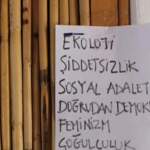 EKOLOJİ
ŞİDDETSİZLİK
SOSYAL ADALET
DOĞRUDAN DEMOK
FEMİNİZM
ÇOĞULCULUK